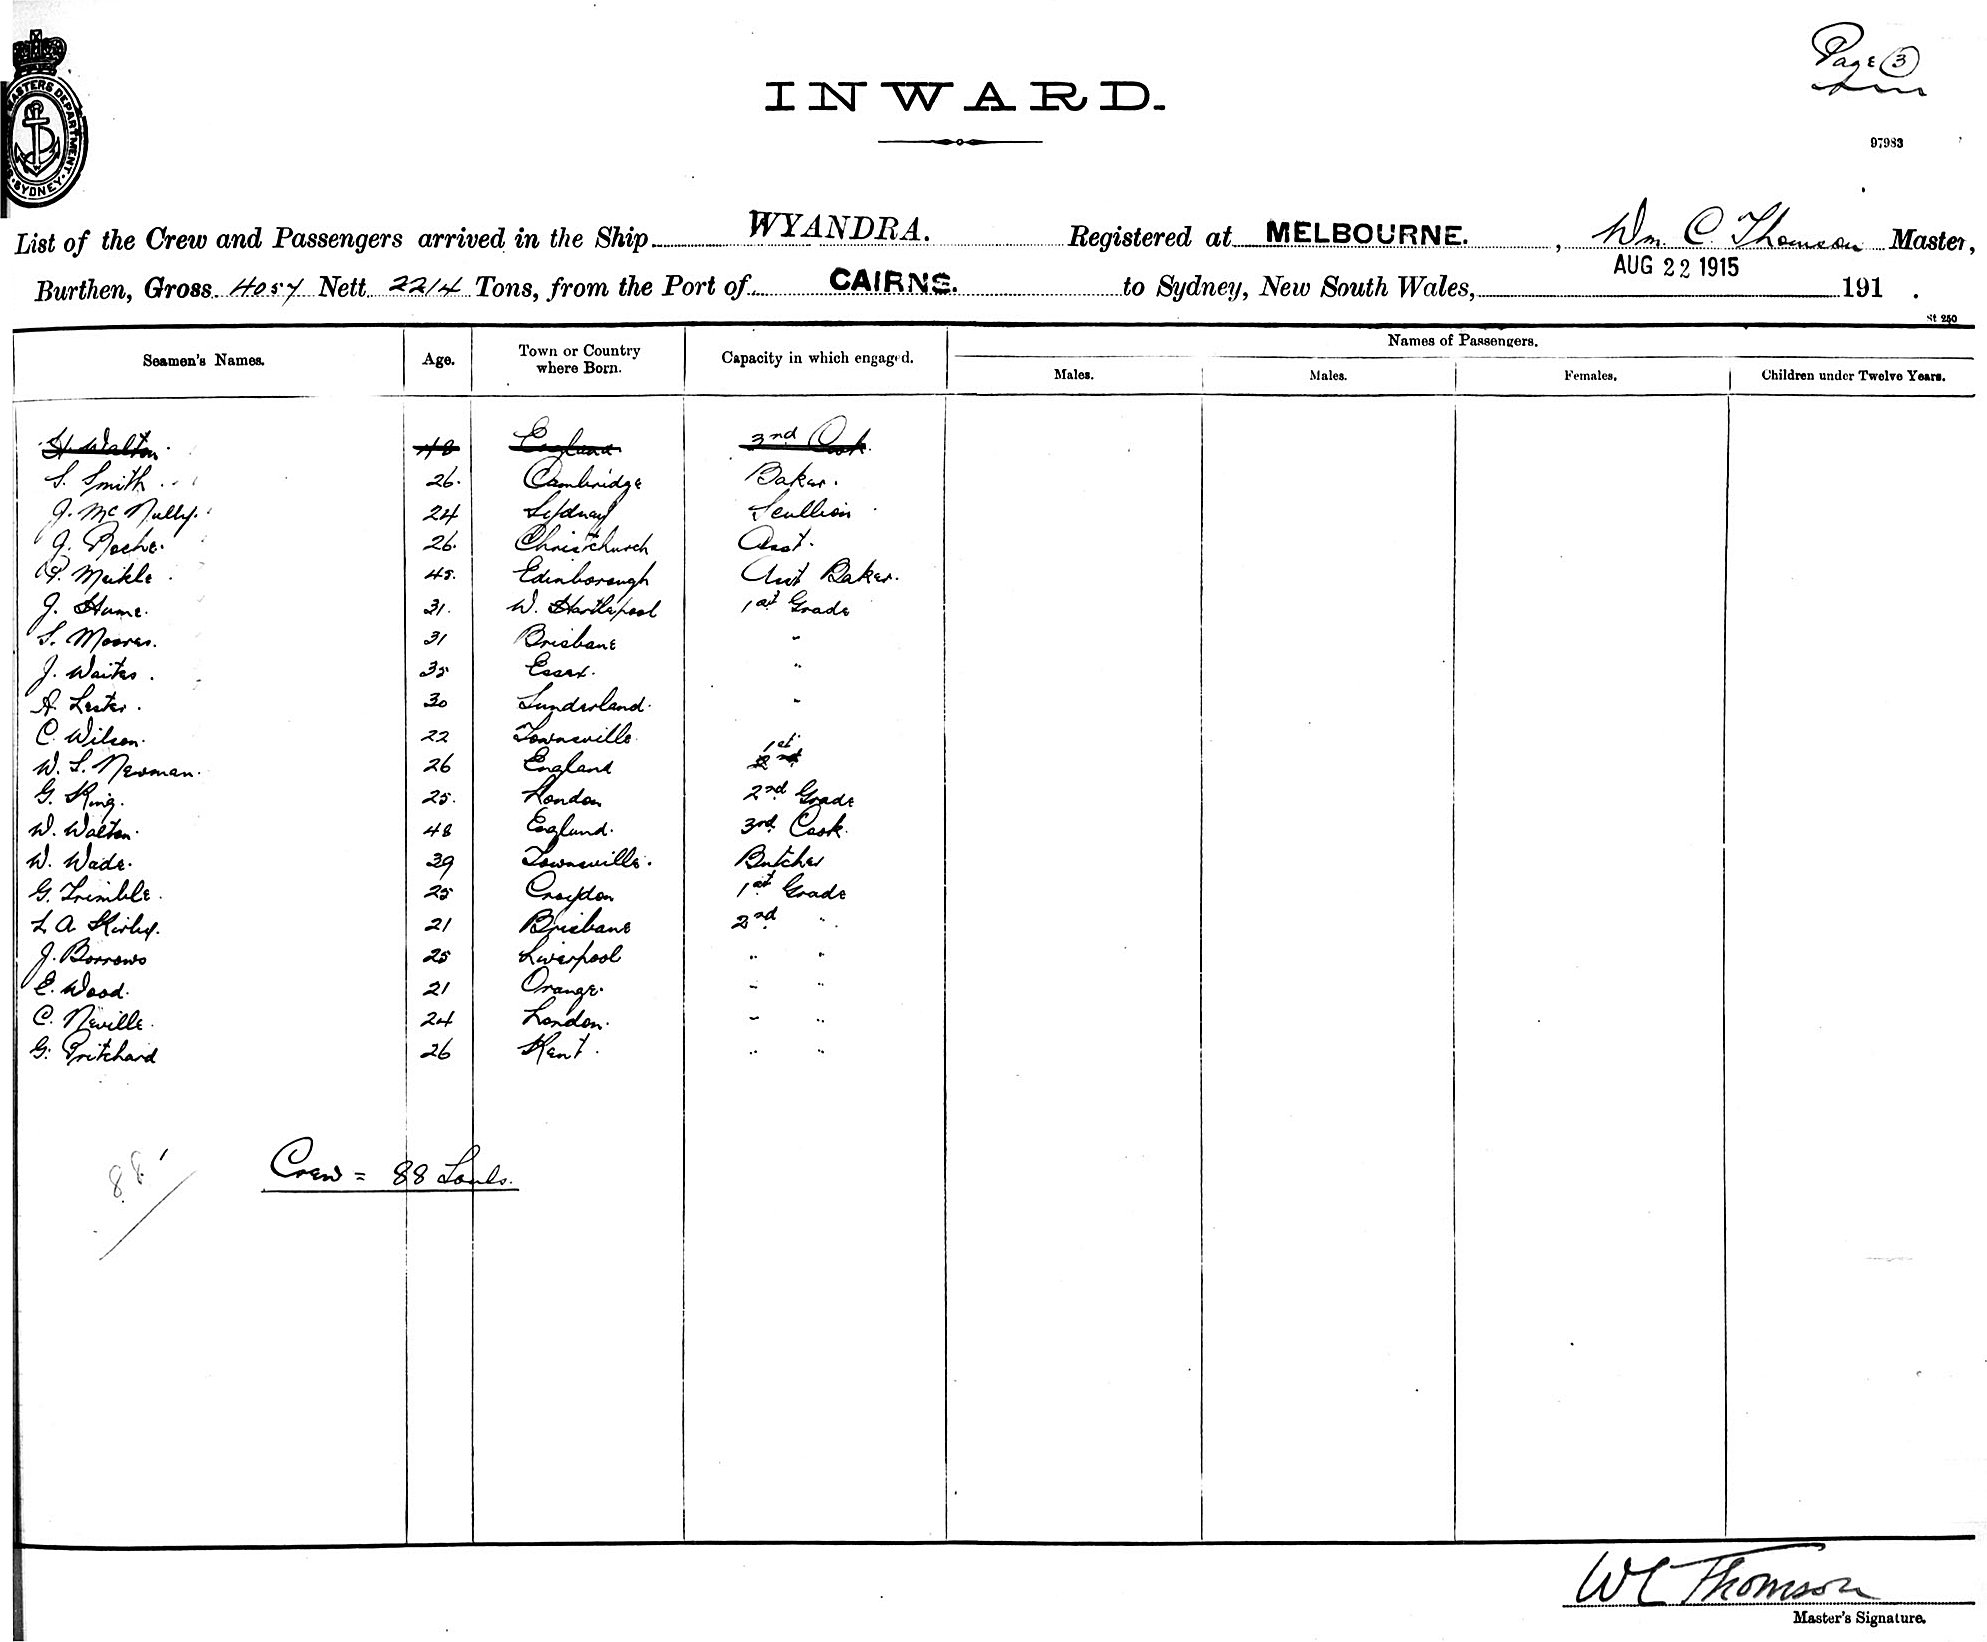 Page 3
INWARD.
97983
MASTERS DEPARTMENT
SYDNEY
List of the Crew and Passengers arrived in the Ship WYANDRA. Registered at MELBOURNE. , Wm. C. Thomson Master,
AUG 22 1915
Burthen, Gross 4057 Nett 2214 Tons, from the Port of CAIRNS. to Sydney, New South Wales, 191 .
St 250
Seamen's Names. Age. Town or Country where Born. Capacity in which engaged. Names of Passengers.
Males. Males. Females. Children under Twelve Years.
H. Walton. 48 England 3rd Cook
S. Smith 26. Cambridge Baker.
J. McNully. 24 Sydney Scullion
J. Roche. 26. Christchurch Asst.
P. Meikle. 45. Edinborough Asst Baker.
J. Hume. 31. W. Hartlepool 1st Grade
S. Moores. 31 Brisbane "
J. Waites. 35 Essex. "
A. Lester. 30 Sunderland. "
C. Wilson. 22 Townsville.
W. S. Newman. 26 England 1st
G. King. 25. London 2nd Grade
W. Walton. 48 England. 3rd Cook.
W. Wade. 39 Townsville. Butcher
G. Trimble. 25 Croydon 1st Grade
L A Kirby. 21 Brisbane 2nd "
J. Borrows 25 Liverpool " "
E. Wood. 21 Orange. " "
C. Neville. 24 London. " "
G. Pritchard 26 Kent. " "
88
Crew = 88 Souls.
WC Thomson
Master's Signature.